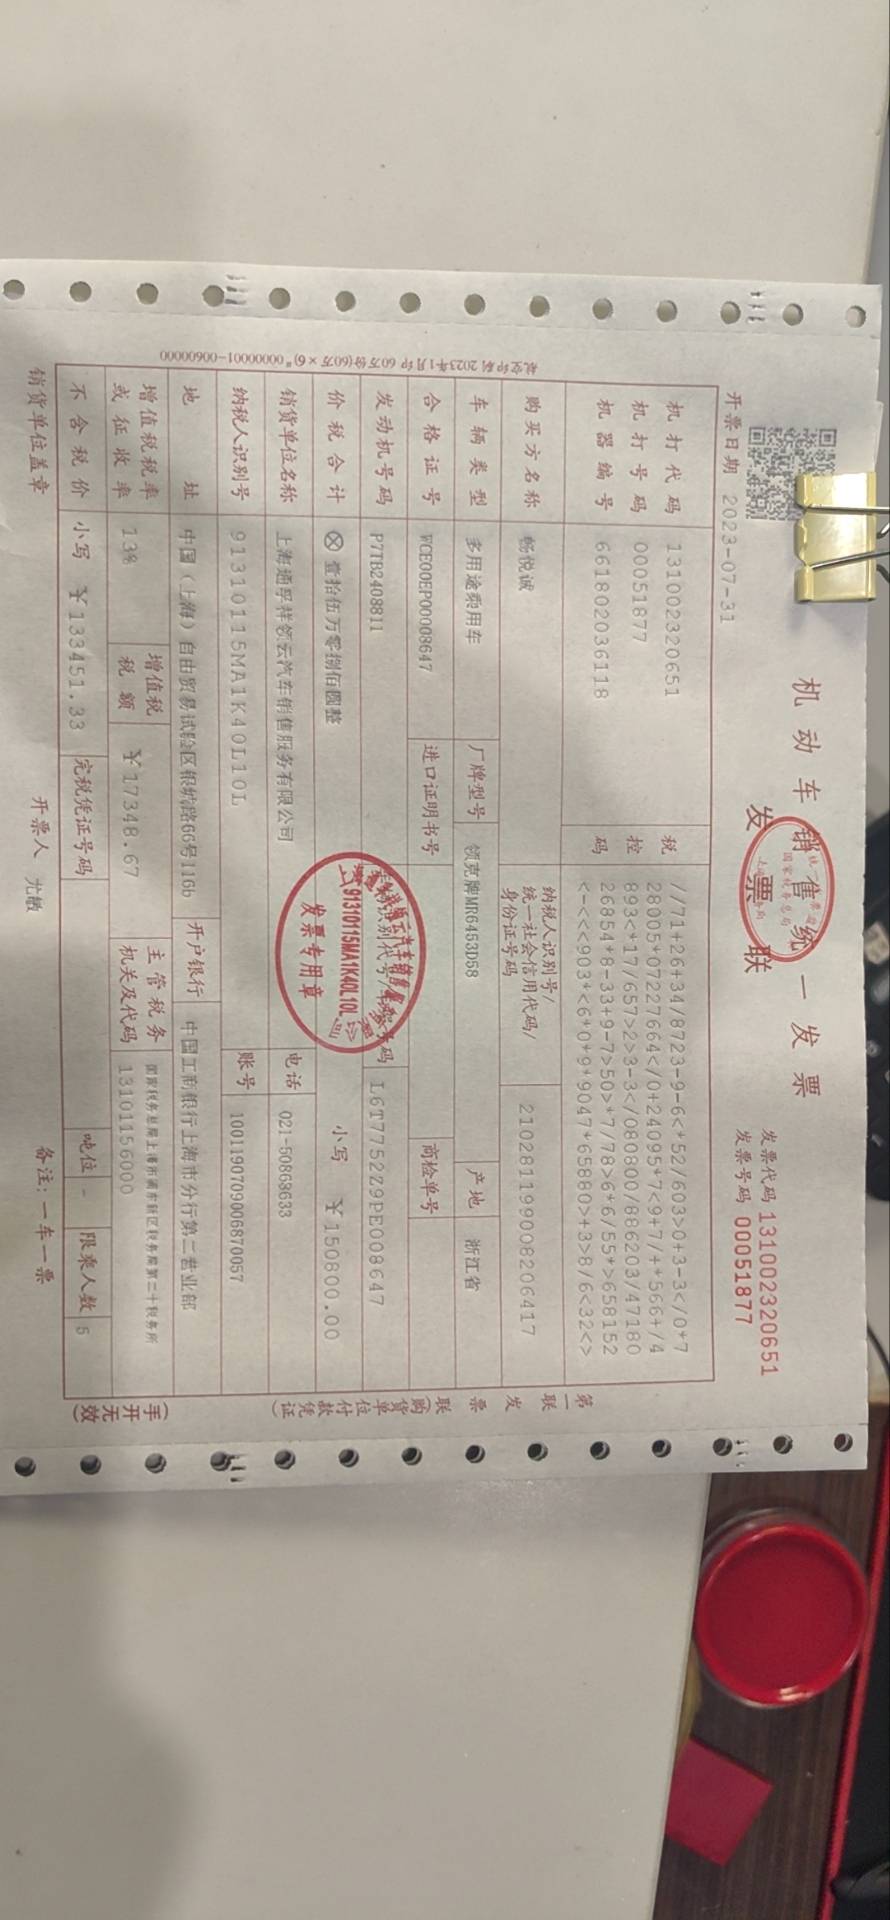 机动车销售统一发票
发票联
发票代码 131002320651
发票号码 00051877
开票日期 2023-07-31
机打代码 131002320651
机打号码 00051877
机器编号 661802036118
税控码
//71+26+34/8723-9-6<*52/603>0+3-3</0*7
28005*07227664</0+24095*7<9+7/+*566+/4
893<*17/657>2>3-3</080800/886203/47180
26854*8-33+9-7>50>*7/78>6*6/55*>658152
<-<<<903*<6*0*9*9047*65880>+3>8/6<32<>
购买方名称 杨悦诚 纳税人识别号/统一社会信用代码/身份证号码 210281199008206417
车辆类型 多用途乘用车 厂牌型号 领克牌MR6453D58 产地 浙江省
合格证号 WCE00EP00008647 进口证明书号 商检单号
发动机号码 P7TB2408811 车辆识别代号/车架号码 L6T7752Z9PE008647
价税合计 ⊗壹拾伍万零捌佰圆整 小写 ¥150800.00
销货单位名称 上海通孚祥领云汽车销售服务有限公司 电话 021-50868633
纳税人识别号 91310115MA1K40L10L 账号 1001190709006870057
地址 中国(上海)自由贸易试验区银城路66号116b 开户银行 中国工商银行上海市分行第二营业部
增值税税率或征收率 13% 增值税税额 ¥17348.67 主管税务机关及代码 国家税务总局上海市浦东新区税务局第二十税务所 13101156000
不含税价 小写 ¥133451.33 完税凭证号码 吨位 - 限乘人数 5
销货单位盖章 开票人 尤敏 备注:一车一票
第一联 发票联(购货单位付款凭证)
(手开无效)
91310115MA1K40L10L
发票专用章
国家税务总局
航空印刷 2023年1月印 60万份(60万×6)* 00000001-00600000